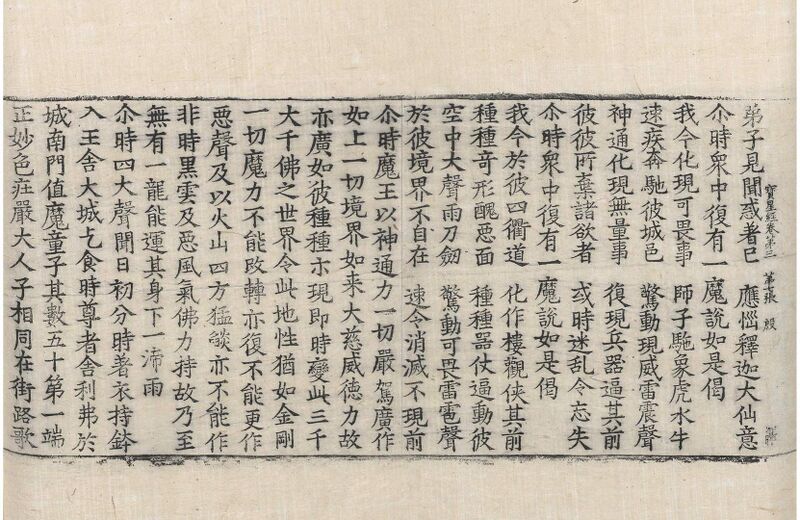 寶星經卷第三 第七張 殷
弟子見聞惑者已 應惱釋迦大仙意
尒時衆中復有一魔說如是偈
我今化現可畏事 師子駞象虎水牛
速疾奔馳彼城邑 驚動現威雷震聲
神通化現無量事 復現兵器逼其前
彼彼所棄諸欲者 或時迷亂令忘失
尒時衆中復有一魔說如是偈
我今於彼四衢道 化作樓觀俠其前
種種奇形醜惡面 種種器仗逼動彼
空中大聲雨刀劒 驚動可畏雷電聲
於彼境界不自在 速令消滅不現前
尒時魔王以神通力一切嚴駕廣作
如上一切境界如来大慈威德力故
亦廣如彼種種亦現即時變此三千
大千佛之世界令此地性猶如金剛
一切魔力不能改轉亦復不能更作
惡聲及以火山四方猛燄亦不能作
非時黑雲及惡風氣佛力持故乃至
無有一龍能運其身下一渧雨
尒時四大聲聞日初分時著衣持鉢
入王舍大城乞食時尊者舍利弗於
城南門值魔童子其數五十第一端
正妙色莊嚴大人子相同在街路歌